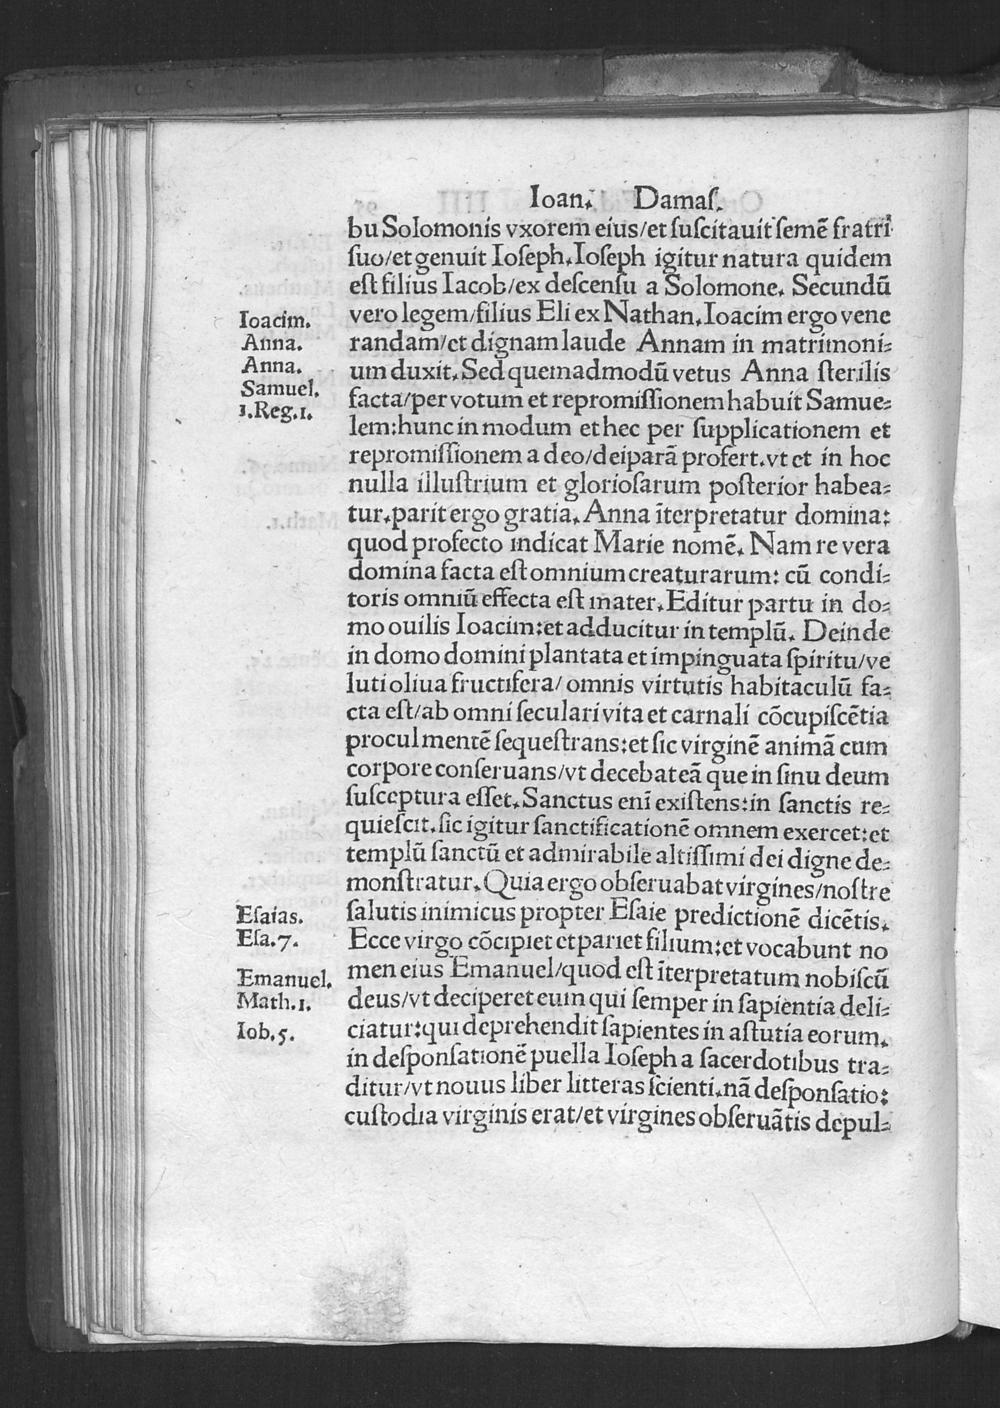 Ioan. Damaſ.
bu Solomonis vxorem eius/et ſuſcitauit ſemē fratri
ſuo/et genuit Ioſeph. Ioſeph igitur natura quidem
eſt filius Iacob/ex deſcenſu a Solomone. Secundū
vero legem/filius Eli ex Nathan. Ioacim ergo vene
randam/et dignam laude Annam in matrimoni⸗
um duxit. Sed quemadmodū vetus Anna ſterilis
facta/per votum et repromiſſionem habuit Samue⸗
lem:hunc in modum et hec per ſupplicationem et
repromiſſionem a deo/deiparā profert.vt et in hoc
nulla illuſtrium et glorioſarum poſterior habea⸗
tur.parit ergo gratia. Anna īterpretatur domina:
quod profecto indicat Marie nomē. Nam re vera
domina facta eſt omnium creaturarum: cū condi⸗
toris omniū effecta eſt mater. Editur partu in do⸗
mo ouilis Ioacim:et adducitur in templū. Deinde
in domo domini plantata et impinguata ſpiritu/ve
luti oliua fructifera/omnis virtutis habitaculū fa⸗
cta eſt/ab omni ſeculari vita et carnali cōcupiſcētia
procul mentē ſequeſtrans:et ſic virginē animā cum
corpore conſeruans/vt decebat eā que in ſinu deum
ſuſceptura eſſet. Sanctus enī exiſtens:in ſanctis re⸗
quieſcit.ſic igitur ſanctificationē omnem exercet:et
templū ſanctū et admirabile altiſſimi dei digne de⸗
monſtratur. Quia ergo obſeruabat virgines/noſtre
ſalutis inimicus propter Eſaie predictionē dicētis.
Ecce virgo cōcipiet et pariet filium:et vocabunt no
men eius Emanuel/quod eſt īterpretatum nobiſcū
deus/vt deciperet eum qui ſemper in ſapientia deli⸗
ciatur:qui deprehendit ſapientes in aſtutia eorum.
in deſponſationē puella Ioſeph a ſacerdotibus tra⸗
ditur/vt nouus liber litteras ſcienti.nā deſponſatio:
cuſtodia virginis erat/et virgines obſeruātis depul⸗
Ioacim.
Anna.
Anna.
Samuel.
1.Reg.1.
Eſaias.
Eſa.7.
Emanuel.
Math.1.
Iob.5.